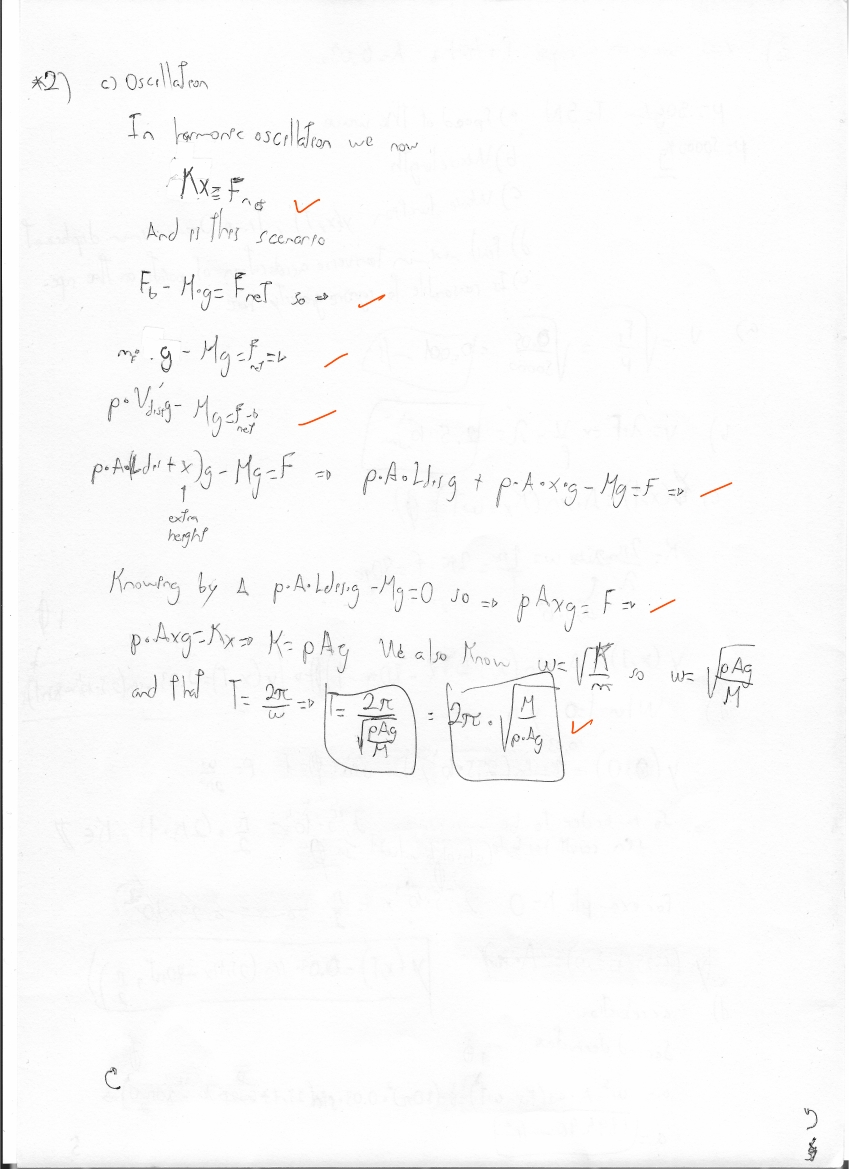 *2) c) Oscillation
In harmonic oscillation we now
Kx = Fnet
And is this scenario
Fb - M·g = Fnet so ⇒
mf · g - Mg = Fnet ⇒
ρ·Vdisp g - Mg = Fnet ⇒
ρ·A·(Ldis + x)g - Mg = F ⇒ ρ·A·Ldis g + ρ·A·x·g - Mg = F ⇒
↑
extra
height
Knowing by A ρ·A·Ldis·g - Mg = 0 so ⇒ ρAxg = F ⇒
ρ·Axg = Kx ⇒ K = ρAg We also know ω = √(K/m) so ω = √(ρAg/M)
and that T = 2π/ω ⇒ T = 2π/√(ρAg/M) = 2π·√(M/ρ·Ag)
C